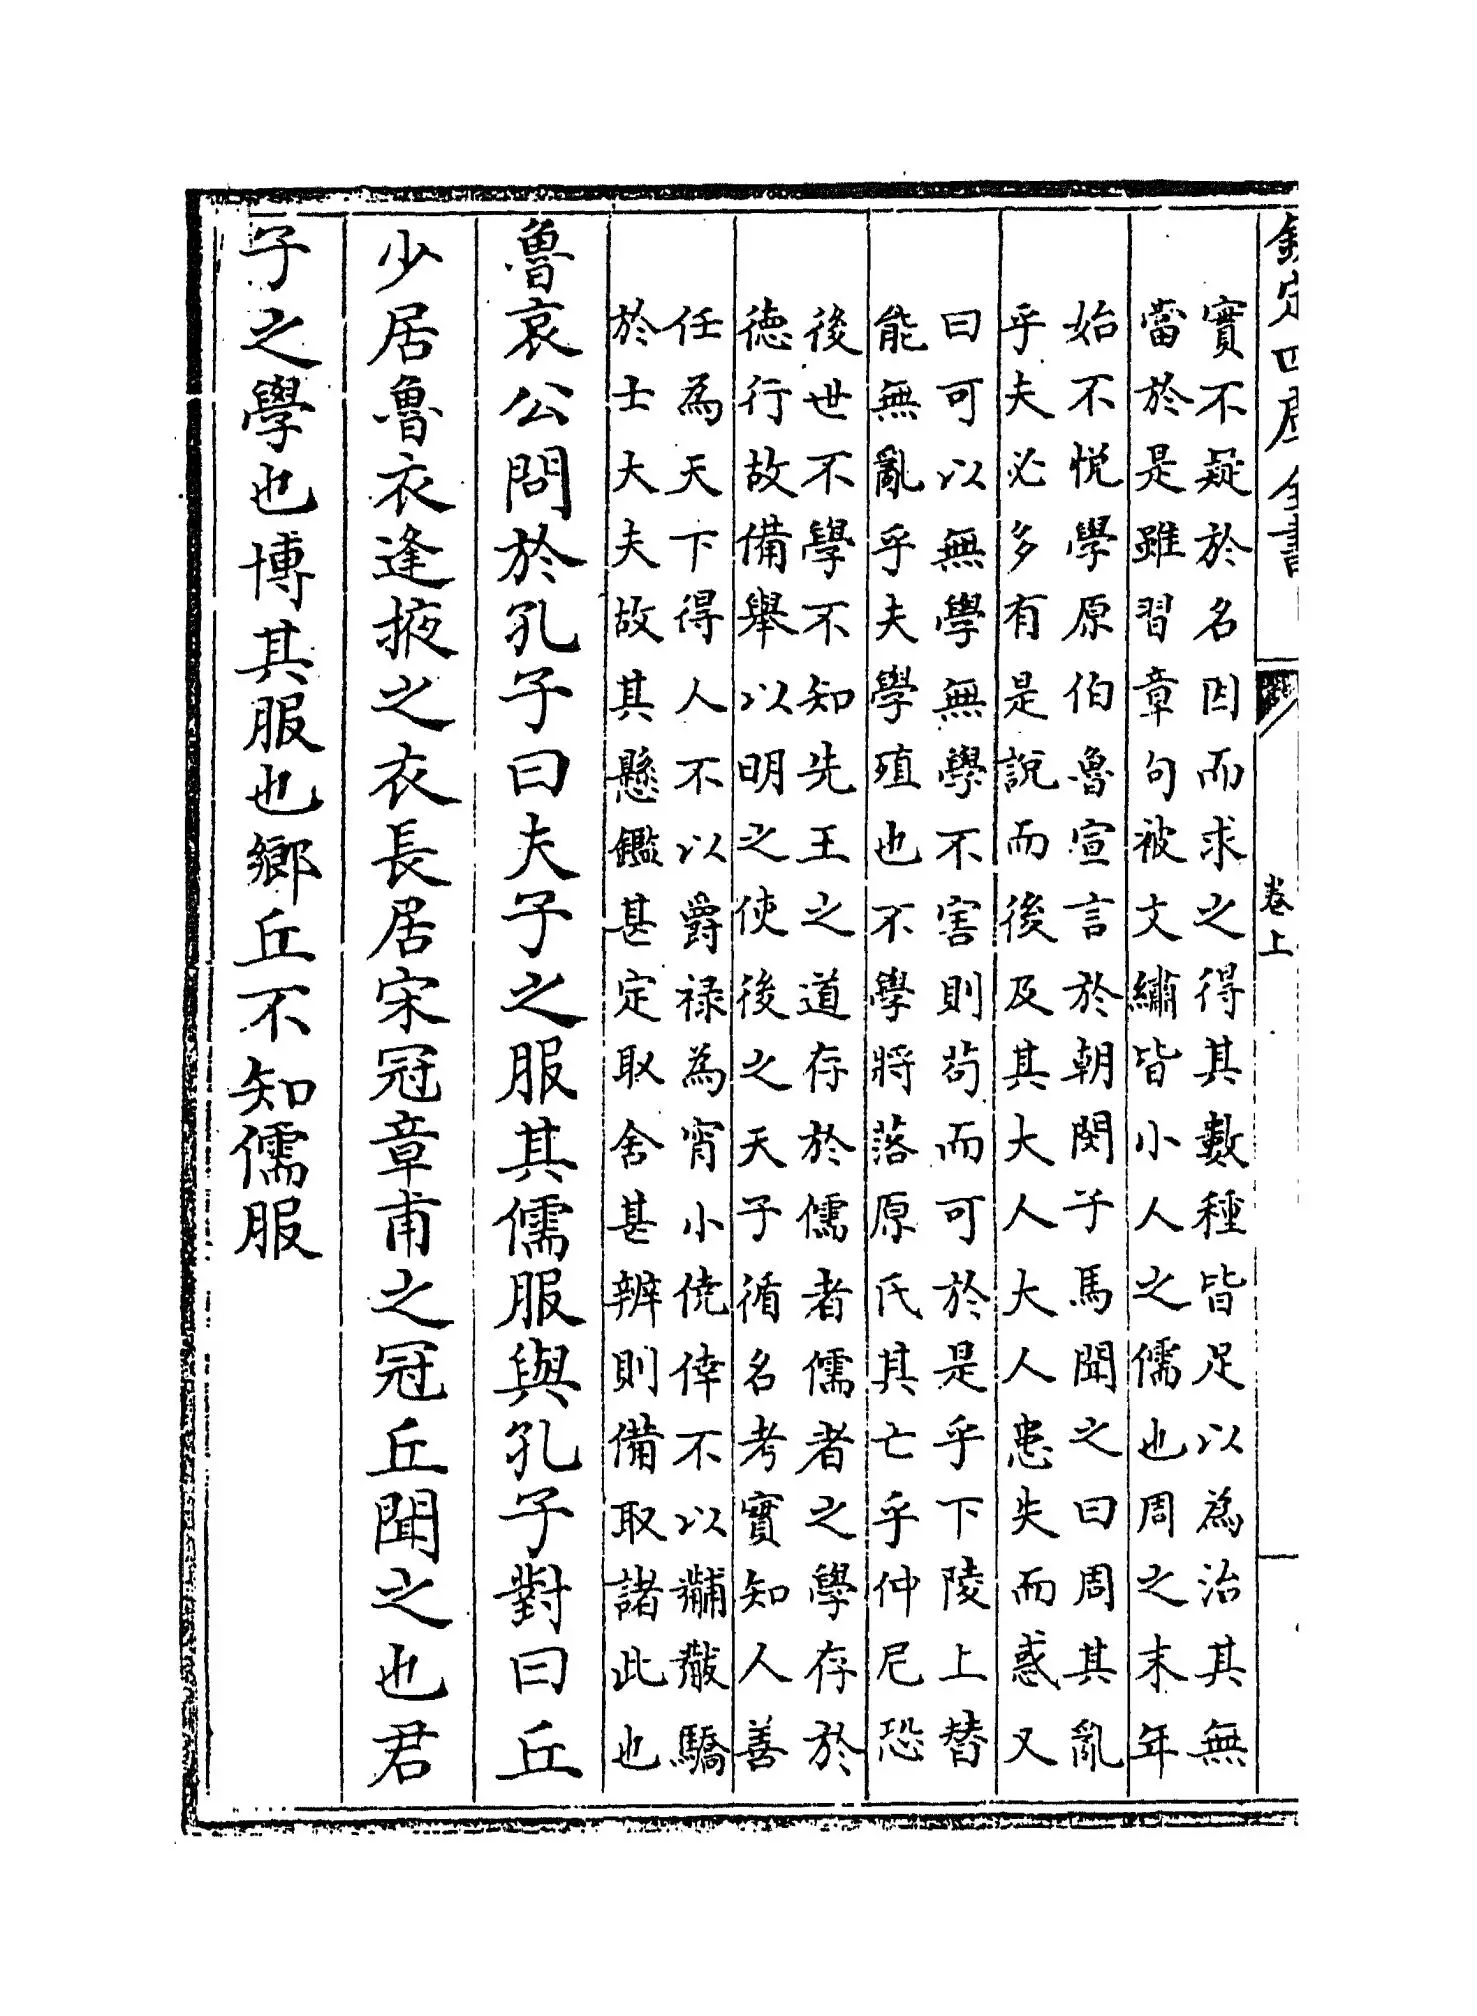 欽定四庫全書
卷上
實不疑於名因而求之得其數種皆足以為治其無
當於是雖習章句被文繡皆小人之儒也周之末年
始不悅學原伯魯宣言於朝閔子馬聞之曰周其亂
乎夫必多有是說而後及其大人大人患失而惑又
曰可以無學無學不害則苟而可於是乎下陵上替
能無亂乎夫學殖也不學將落原氏其亡乎仲尼恐
後世不學不知先王之道存於儒者儒者之學存於
德行故備舉以明之使後之天子循名考實知人善
任為天下得人不以爵祿為宵小僥倖不以黼黻驕
於士大夫故其懸鑑甚定取舍甚辨則備取諸此也
魯哀公問於孔子曰夫子之服其儒服與孔子對曰丘
少居魯衣逢掖之衣長居宋冠章甫之冠丘聞之也君
子之學也博其服也鄉丘不知儒服